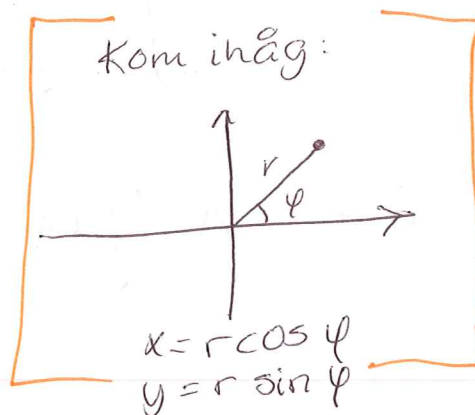 Kom ihåg:
r
φ
x = r cos φ
y = r sin φ